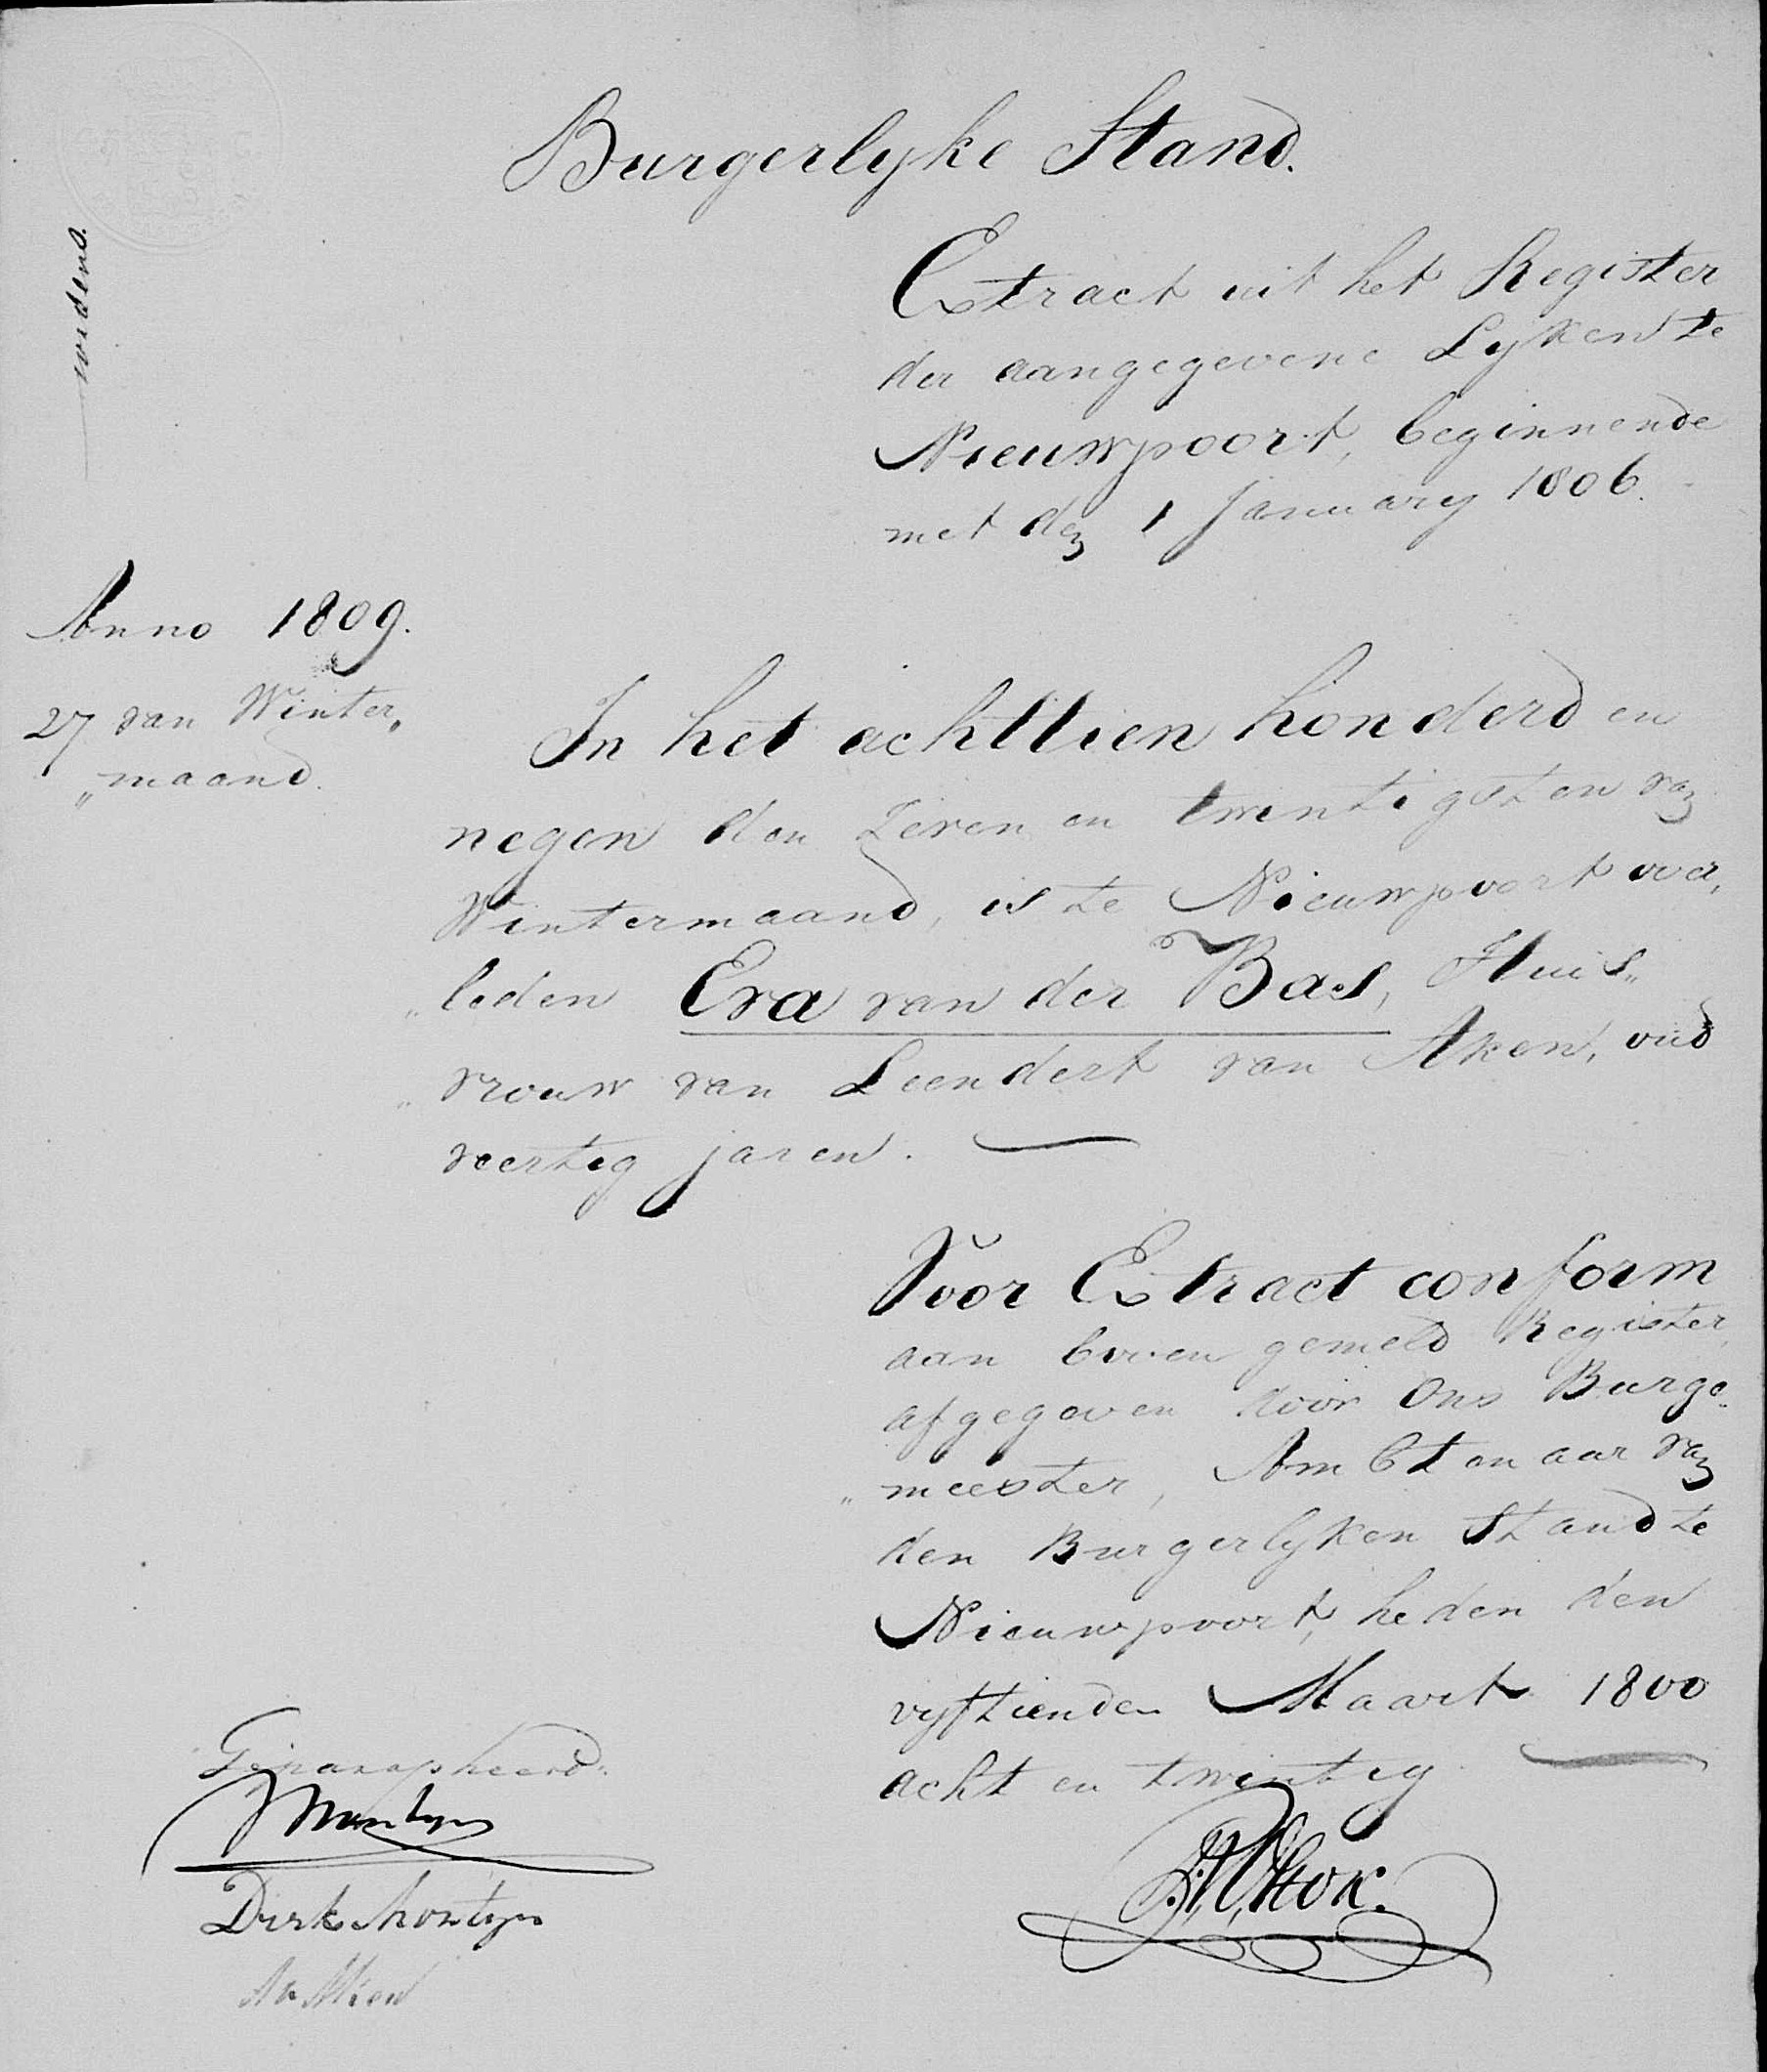 Burgerlyke Stand.
Extract uit het Register
der aangegevene Lyken te
Nieuwpoort, beginnende
met den 1 January 1806.
Anno 1809.
27 van Winter„
„maand.
In het achttien honderd en
negen den zeven en twintigsten van
Wintermaand, is te Nieuwpoort over„
„leden Eva van der Bas, Huis„
„vrouw van Leendert van Aken, oud
veertig jaren.
Voor Extract conform
aan boven gemeld Register,
afgegeven door Ons Burge„
„meester, Ambtenaar van
den Burgerlyken Stand te
Nieuwpoort, heden den
vyftienden Maart 1800
acht en twintig
Geparapheerd
Montyn
Dirk Montyn